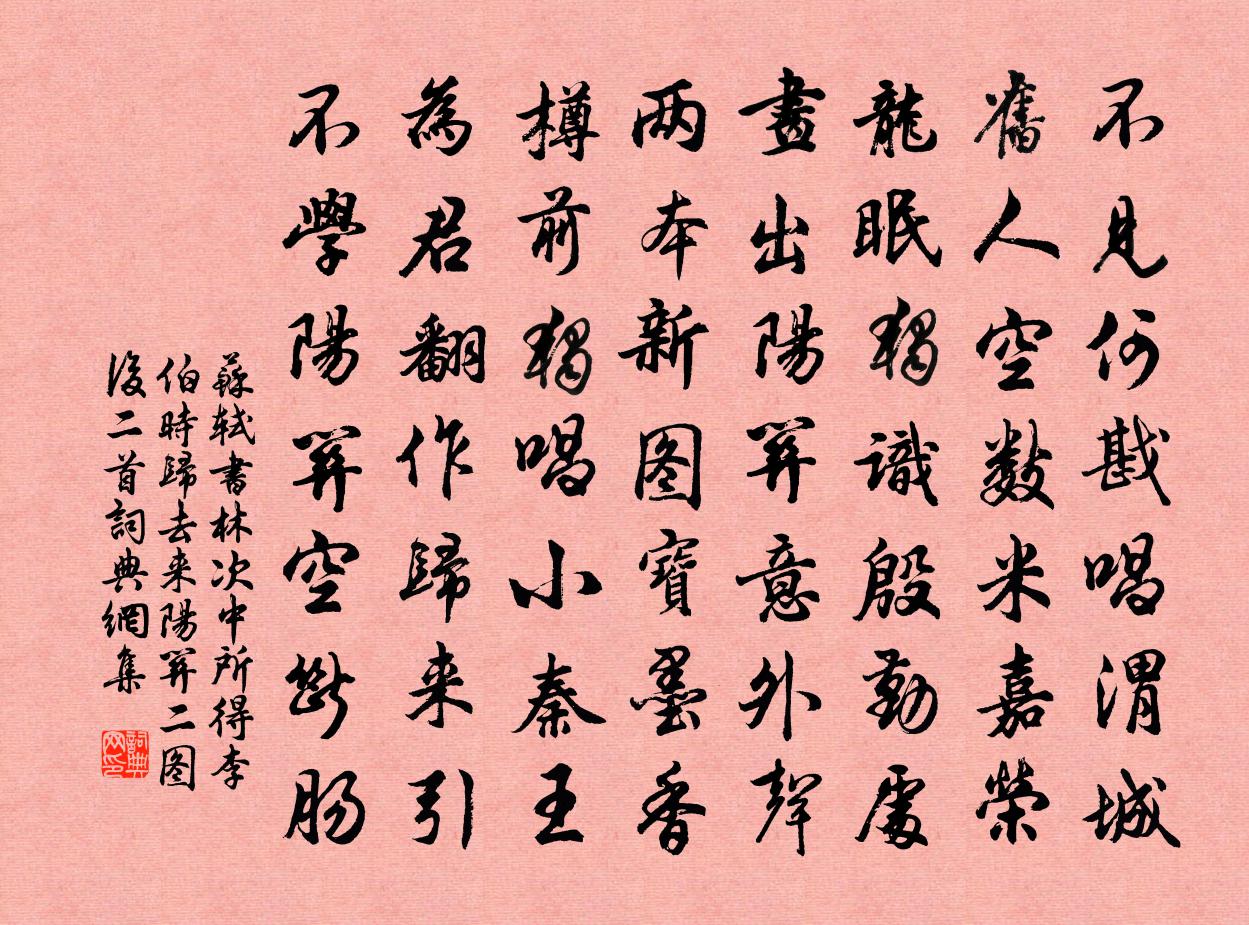 不見何戡唱渭城
舊人空數米嘉榮
龍眠獨識殷勤處
畫出陽關意外聲
两本新图寶墨香
樽前獨唱小秦王
為君翻作歸来引
不學陽關空斷腸
蘇軾書林次中所得李
伯時歸去来陽關二图
後二首詞典網集
詞典
网印